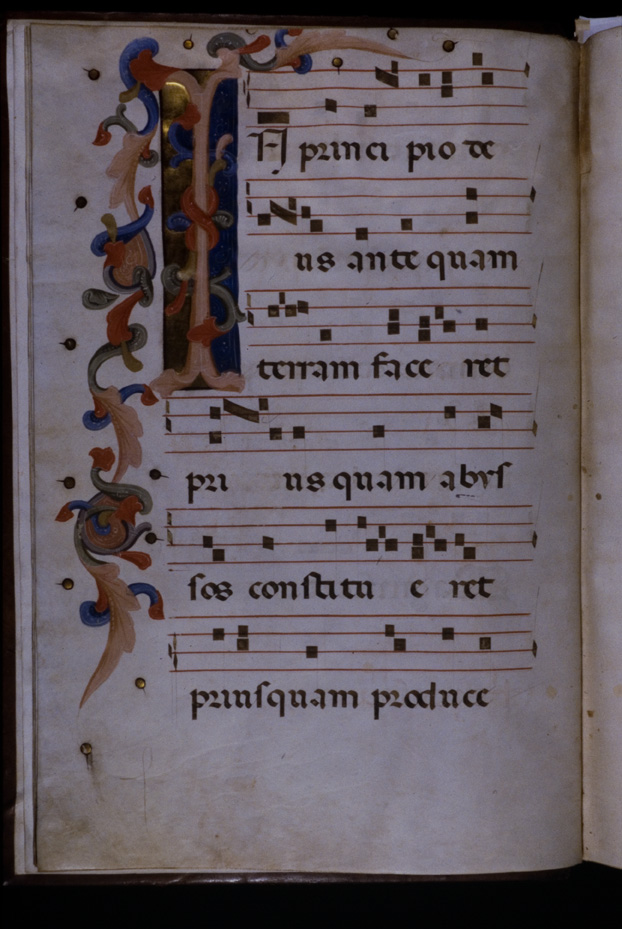 IN princi pio de
us ante quam
terram face ret
pri us quam abys
sos constitu e ret
priusquam produce